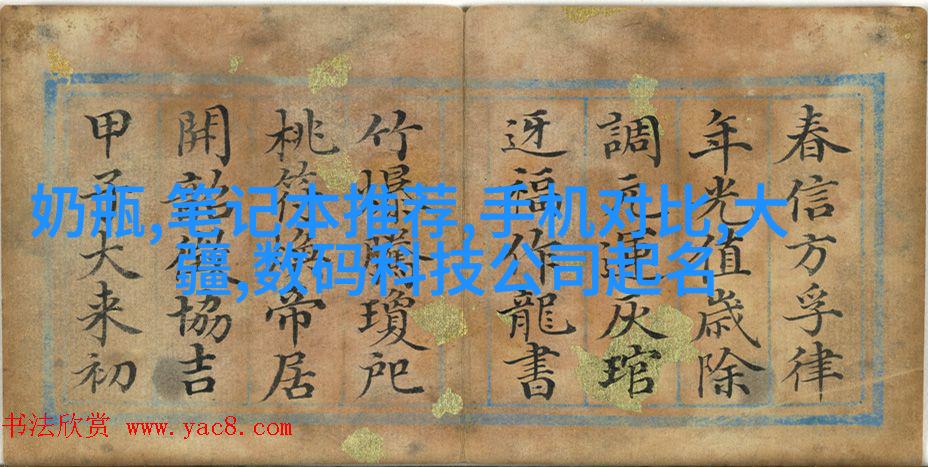 春信方孚律
年光值歲除
調元運灰琯
迓福作龍書
竹爆騰瓊
桃符煥帝居
開韶協吉
甲子大来初
奶瓶,笔记本推荐,手机对比,大
疆,数码科技公司起名
书法欣赏 www.yac8.com